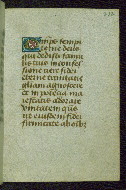 Omips sempi
terne deus
qui dedisti famu
lis tuis in confes
sione vere fidei
eterne trinitatis
gloriam agnoscere
et in potecia ma
iestatis adorare
vnitatem qs
vt eiusdem fidei
firmitate ab oib3